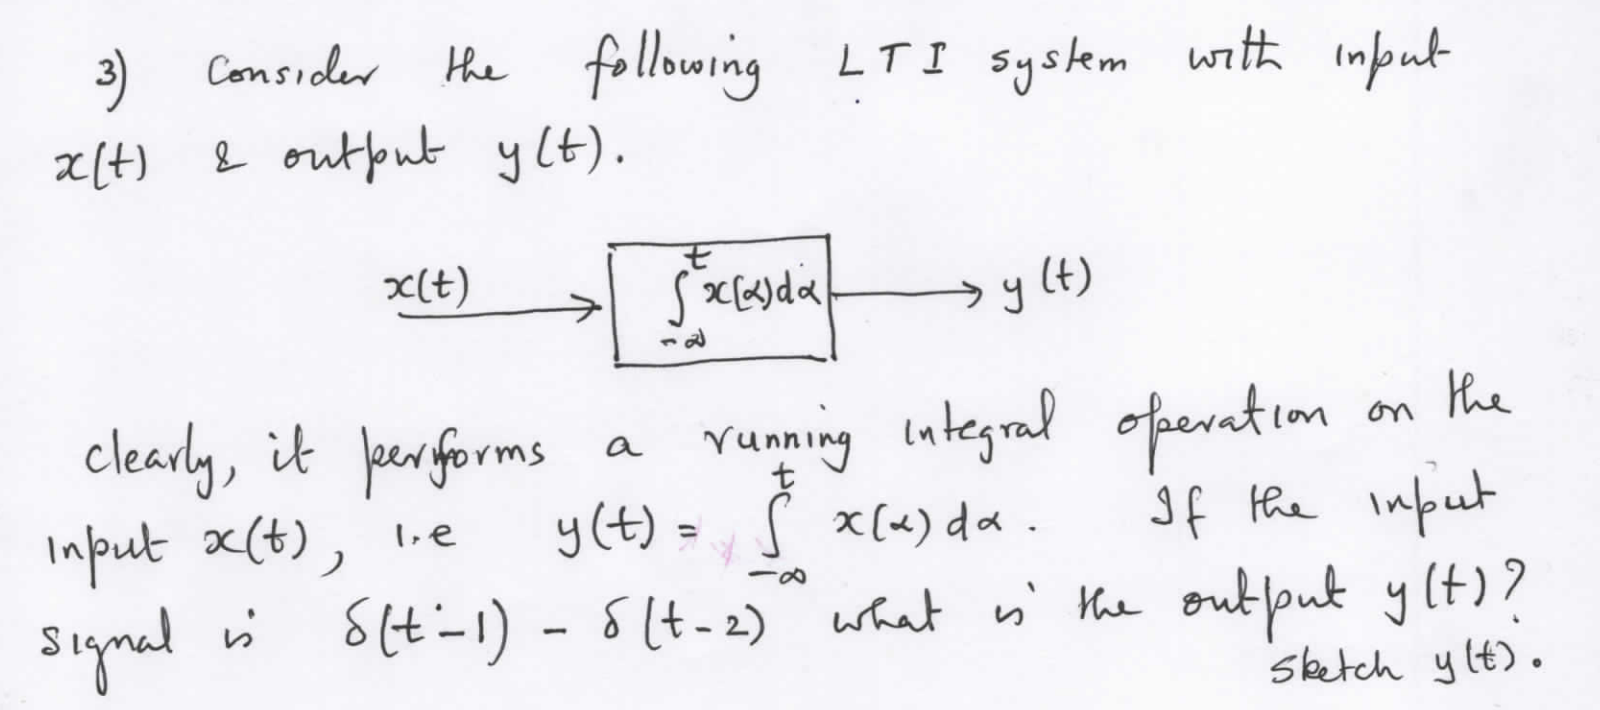 3) Consider the following LTI system with input
x(t) & output y(t).
x(t) ∫_{-∞}^{t} x(α)dα y(t)
clearly, it performs a running integral operation on the
input x(t), i.e y(t) = ∫_{-∞}^{t} x(α)dα. If the input
signal is δ(t-1) - δ(t-2) what is the output y(t)?
sketch y(t).